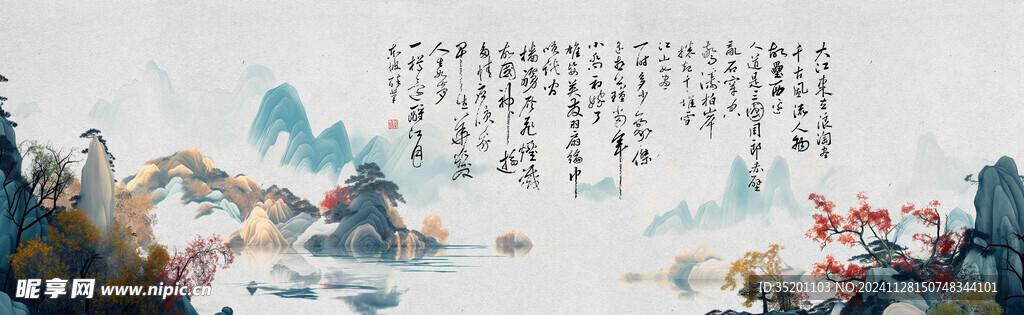 大江東去浪淘尽
千古風流人物
故壘西边
人道是三國周郎赤壁
亂石穿空
驚濤拍岸
捲起千堆雪
江山如畫
一时多少豪傑
遥想公瑾當年
小喬初嫁了
雄姿英发羽扇綸巾
談笑間
檣艣灰飛煙滅
故國神游
多情應笑我
早生華髮
人生如夢
一樽還酹江月
昵享网 www.nipic.cn
ID:35201103 NO:20241128150748344101